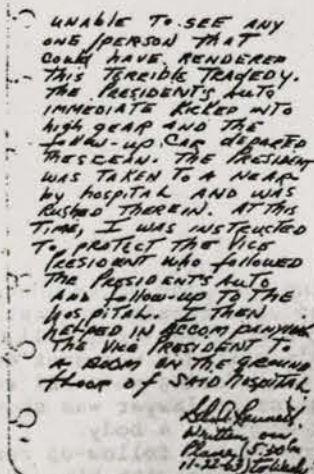 UNABLE TO SEE ANY
ONE PERSON THAT
COULD HAVE RENDERED
THIS TERRIBLE TRAGEDY.
THE PRESIDENT'S AUTO
IMMEDIATE KICKED INTO
high gEAR AND THE
follow-up CAR dEPARTED
THESCEAN. THE PRESIDENT
WAS TAKEN TO A NEAR
by hospITAL AND WAS
RUSHED THEREIN. AT THIS
TIME, I WAS INSTRUCTED
TO PROTECT THE VICE
PRESIDENT WHO followED
THE PRESIDENT'S AUTO
AND follow-up TO THE
HOSPITAL. I THEN
HELPED IN ACCOMPANYING
THE VICE PRESIDENT TO
A ROOM ON THE GROUND
flooR of SAID HOSPITAL.
Written on
Plane
11-22-63
lawyer was
a body
follow-up